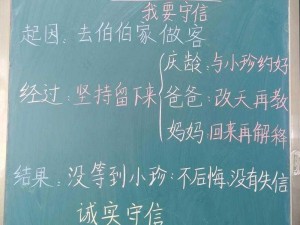 我要守信
起因：去伯伯家做客
经过：坚持留下来
庆龄：与小珍约好
爸爸：改天再教
妈妈：回来再解释
结果：没等到小珍：不后悔，没有失信
诚实守信